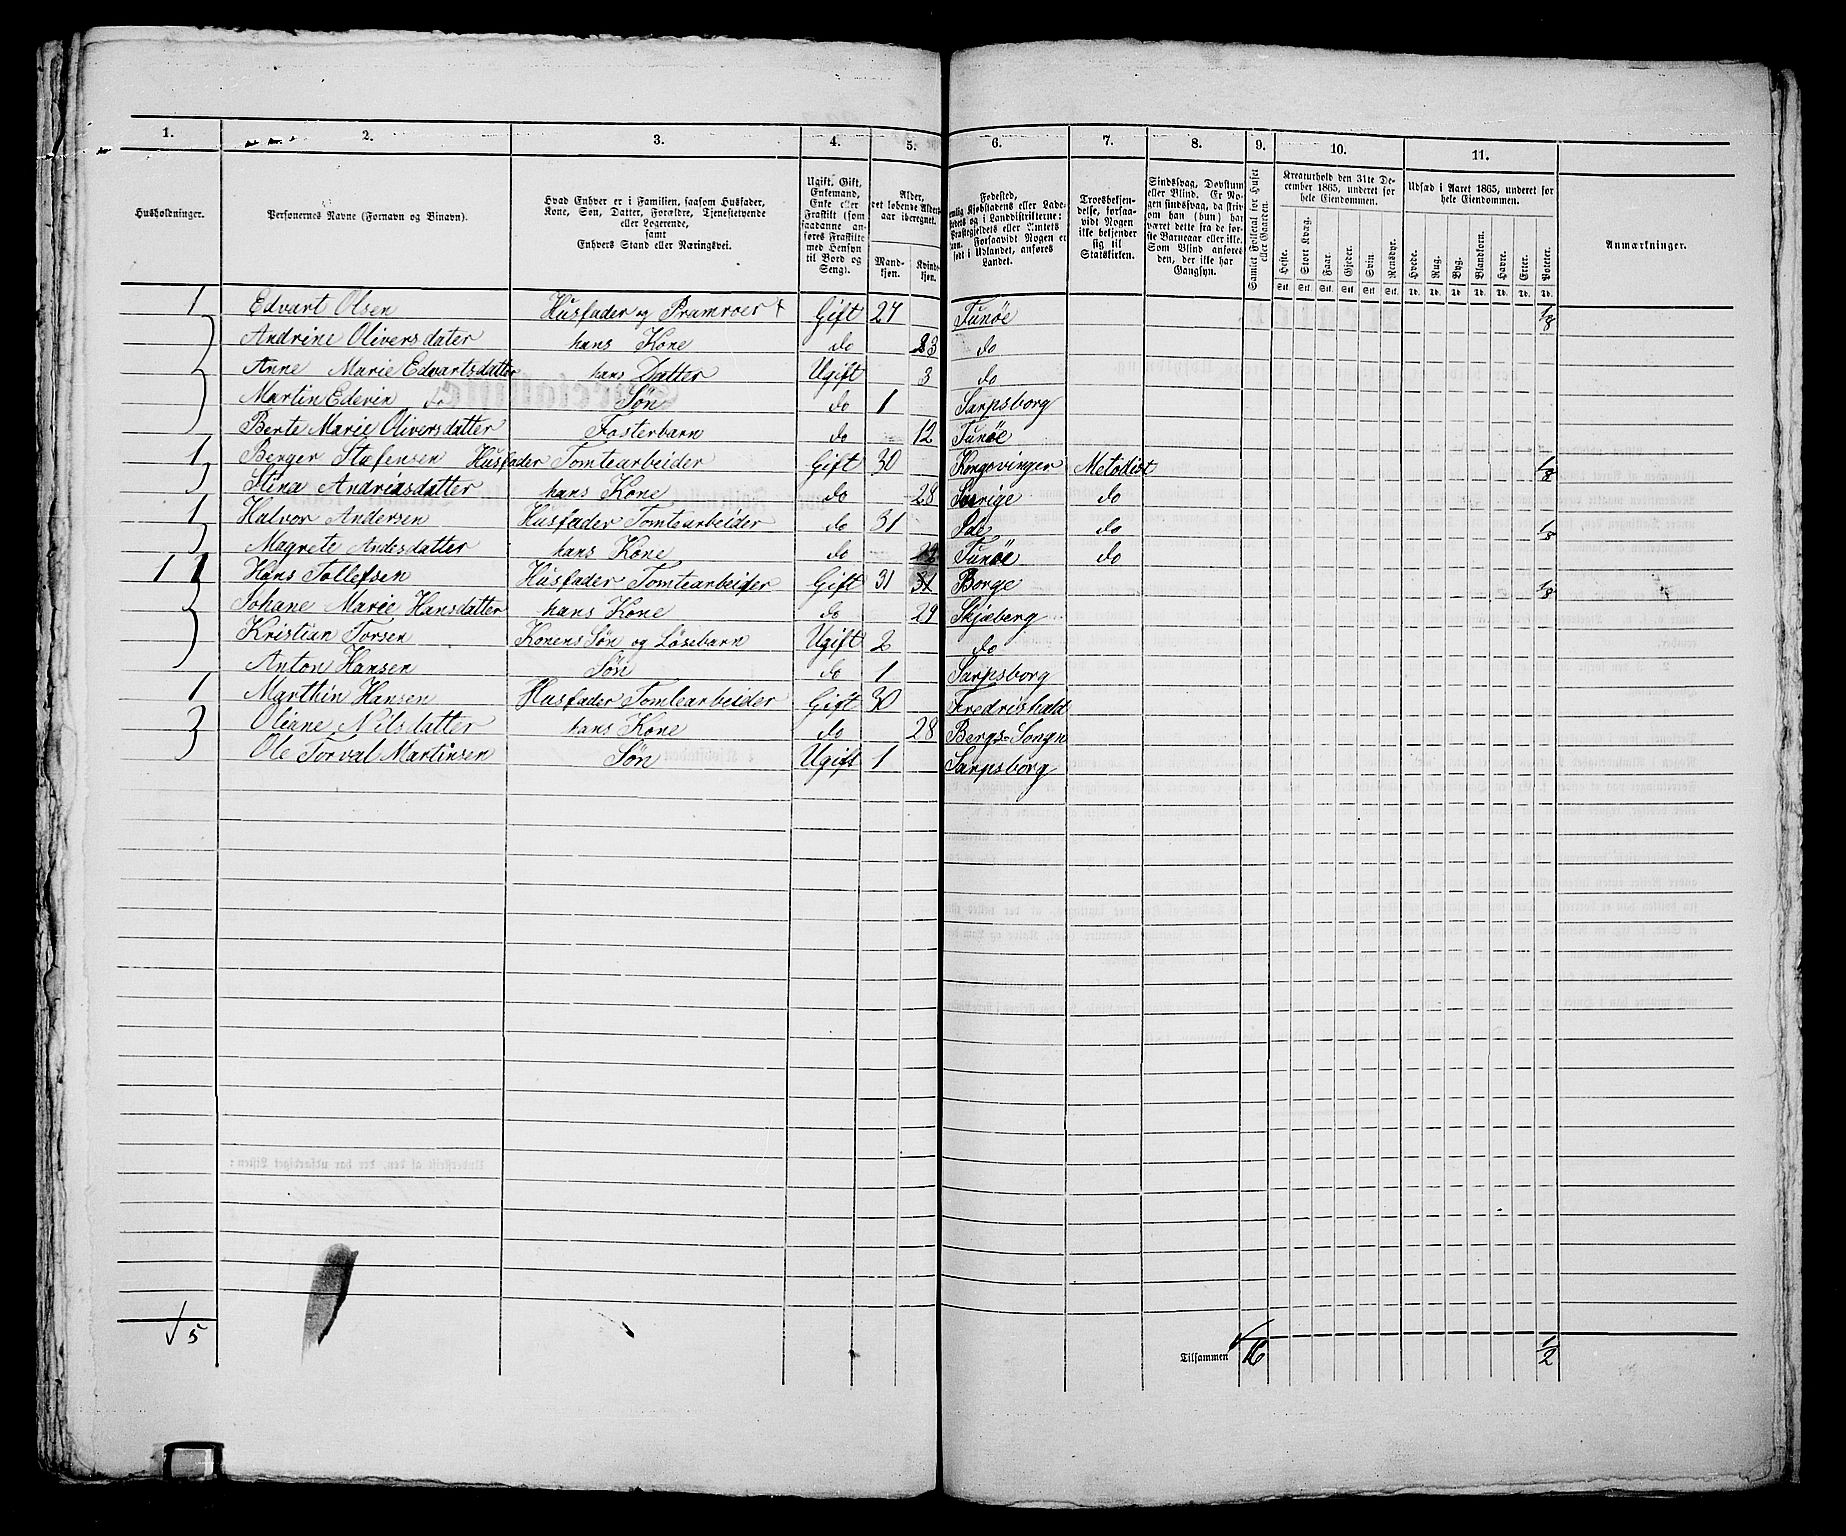 1. 2. 3. 4. 5. 6. 7. 8. 9. 10. 11.
Husholdninger.
Personernes Navne (Fornavn og Binavn).
Hvad Enhver er i Familien, saasom Husfader,
Kone, Søn, Datter, Forældre, Tjenestetyende
eller Logerende,
samt
Enhvers Stand eller Næringsvei.
Ugift, Gift,
Enkemand,
Enke eller
Fraskilt (som
saadanne an-
føres Fraskilte
med Hensyn
til Bord og
Seng).
Alder,
det løbende Alders-
aar iberegnet.
Mand-
kjøn.
Kvinde-
kjøn.
Fødested,
Landet.
Troesbekjen-
delse, forsaa-
vidt Nogen
ikke bekjender
sig til
Statskirken.
Sindssvag, Døvstum
eller Blind. Er No-
gen sindssvag, da skri-
ves om han (hun) har
været dette fra de før-
ste Barneaar eller ikke.
Som Blind anføres
den, der ikke har
Gangsyn.
Samlet Folketal for Huset
eller Gaarden.
Kreaturhold den 31te De-
cember 1865, underet for
hele Eiendommen.
Heste. Stort Kvæg. Faar. Gjeder. Svin. Rensdyr.
Stk. Stk. Stk. Stk. Stk. Stk.
Udsæd i Aaret 1865, underet for
hele Eiendommen.
Hvede. Rug. Byg. Blandkorn. Havre. Erter. Poteter.
Td. Td. Td. Td. Td. Td. Td.
Anmærkninger.
1 Edvart Olsen Husfader og Pramroer + Gift 27 Tunøe 1/8
Andrine Oliversdater hans Kone do 23 do
Anne Marie Edvartsdatter hans Datter Ugift 3 do
Martin Edevin do Søn do 1 Sarpsborg
Berte Marie Oliversdatter Fosterbarn do 12 Tunøe
1 Berger Stæfensen Husfader Tomtearbeider Gift 30 Kongsvinger Metodist 1/8
Stina Andreasdatter hans Kone do 28 Sverige do
1 Halvor Andersen Husfader Tomtearbeider do 31 Ide do 1/8
Magrete Andesdatter hans Kone do Tunøe do
1 1 Hans Tollefsen Husfader Tomtearbeider Gift 31 31 Borge 1/8
Johane Marie Hansdatter hans Kone do 29 Skjeberg
Kristian Torsen Konens Søn og Løsebarn Ugift 2 do
Anton Hansen Søn do 1 Sarpsborg
1 Marthin Hansen Husfader Tomtearbeider Gift 30 Fredrishald
Oliane Nilsdatter hans Kone do 28 Bergs-Songn
Ole Torval Martinsen Søn Ugift 1 Sarpsborg
√ 5 Tilsammen 16 1/2